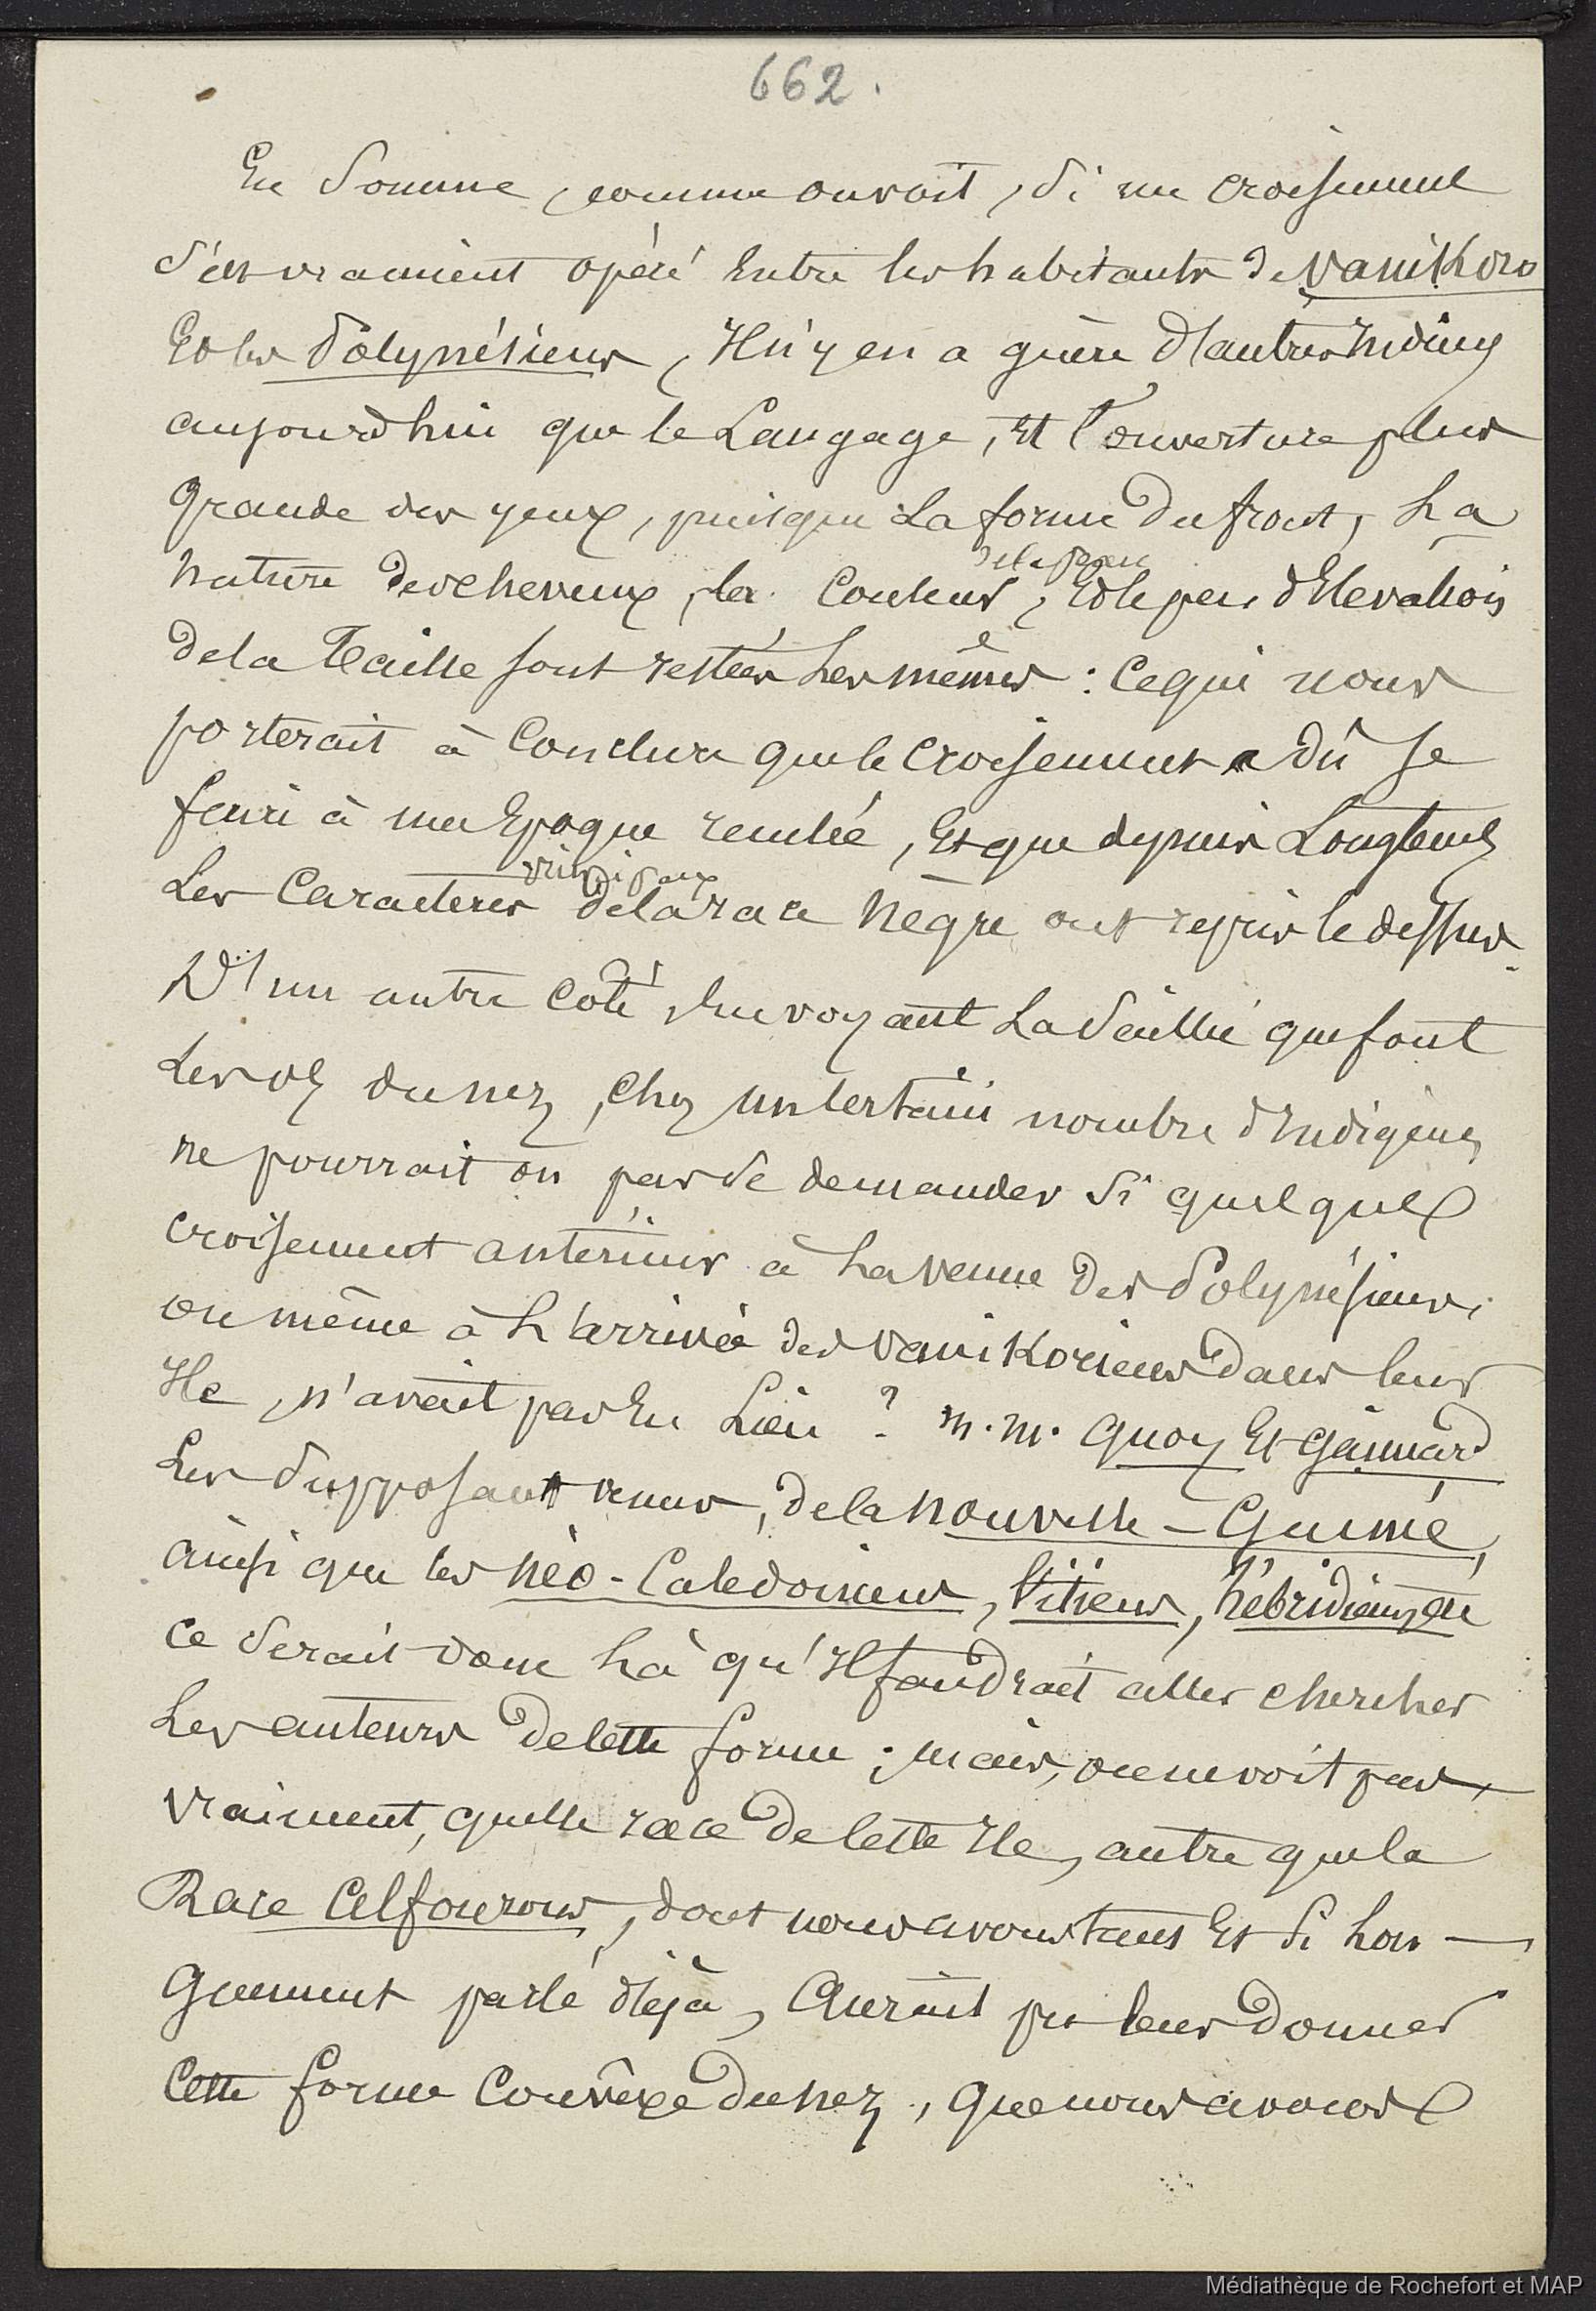 662.
En Somme, comme on voit, Si un croisement
s'est vraiment opéré Entre les habitants de Vanikoro
Et les Polynésiens, Il n'y en a guère d'autres Indices
aujourd'hui que le Langage, Et l'ouverture plus
grande des yeux, puisque La forme du front, La
de la peau
Nature des cheveux, la Couleur, Et le peu d'Elévation
de la Taille sont restées Les mêmes : Ce qui nous
porterait à Conclure que le croisement a dû se
faire à une Epoque reculée, Et que depuis Longtemps
principaux
Les Caractères de la race Nègre ont repris le dessus.
D'un autre Côté, En voyant La Saillie que font
Les os du nez, Chez un Certain nombre d'Indigènes
ne pourrait on pas se demander Si quelque
croisement antérieur à La venue des Polynésiens,
ou même à L'arrivée des Vanikoriens dans leur
Ile, n'avait pas Eu Lieu ? M.M. Quoy Et Gaimard
Les Supposant venus, de la Nouvelle-Guinée,
ainsi que les Néo-Calédoniens, Vitiens, hébridiens,
ce Serait donc Là qu'Il faudrait aller chercher
Les auteurs de Cette forme ; mais, on ne voit pas
vraiment, quelle race de Cette Ile, autre que la
Race Alfourous, dont nous avons tant Et Si Lon-
guement parlé déjà, Aurait pu leur donner
Cette forme Convexe du nez, que nous avons
Médiathèque de Rochefort et MAP